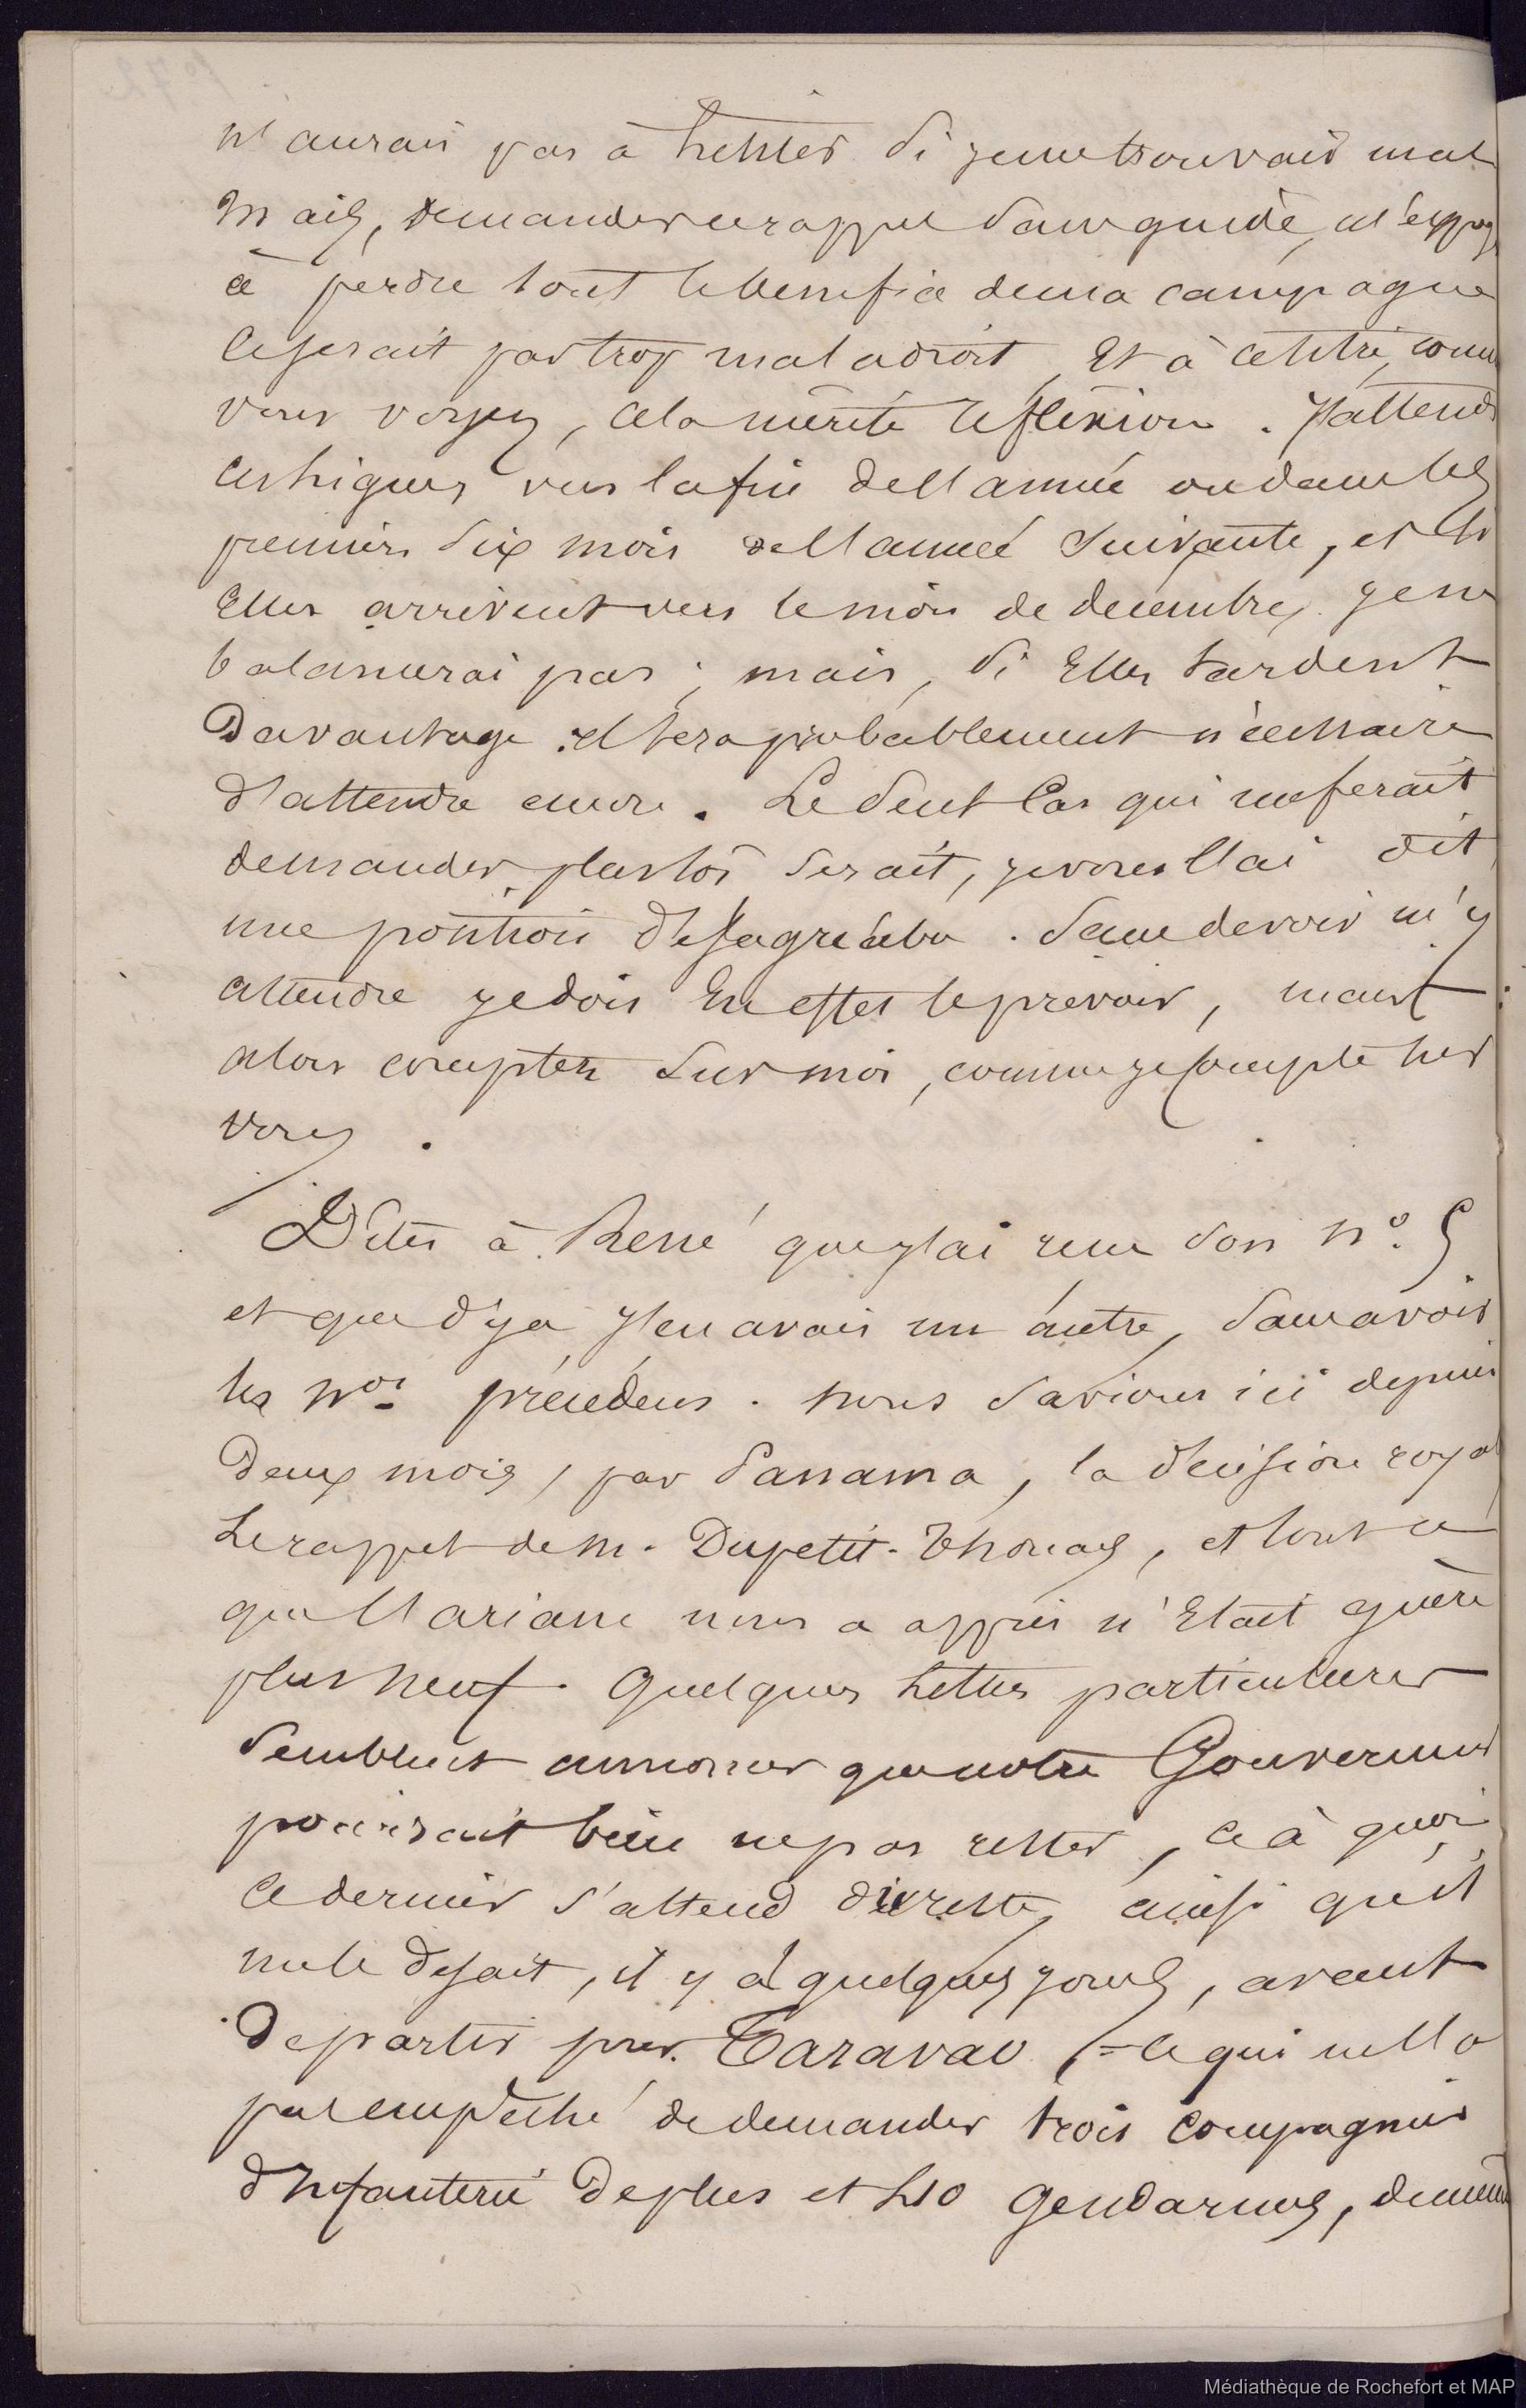 n'aurais pas à hésiter si je me trouvais mal
Mais, demander ce rappel sans guide, m'expos
à perdre tout le bénéfice de ma campagne
Ce serait par trop maladroit, Et à ce titre, comme
vous voyez, cela mérite réflexion. J'attends
ces vers la fin de l'année ou dans les
premiers six mois de l'année suivante, et si
Elles arrivent vers le mois de décembre, je ne
balancerai pas ; mais, si Elles tardent
Davantage il sera probablement nécessaire
d'attendre encore. Le seul Cas qui me ferait
demander plus tôt serait, je vous l'ai dit,
une position désagréable. Sans devoir m'y
attendre je dois En effet le prévoir, mais
alors comptez sur moi, comme je compte sur
vous.
Dites à René que j'ai reçu son n°. 5
et que déjà j'en avais un autre, sans avoir
les nos précédens. Nous savions ici depuis
Deux mois, par Panama, la décision royal
Le rappel de M. Dupetit-Thouars, et tout ce
que l'ariane nous a appris n'Etait guère
plus neuf. Quelques lettres particulières
semblent annoncer que notre Gouverneur
pourrait bien ne pas rester, ce à quoi
ce dernier s'attend du reste, ainsi qu'il
me le disait, il y a quelques jours, avant
De partir pour Taravao, = ce qui ne l'a
pas empêché de demander trois compagnies
d'Infanterie De plus et 210 gendarmes, de même
Médiathèque de Rochefort et MAP